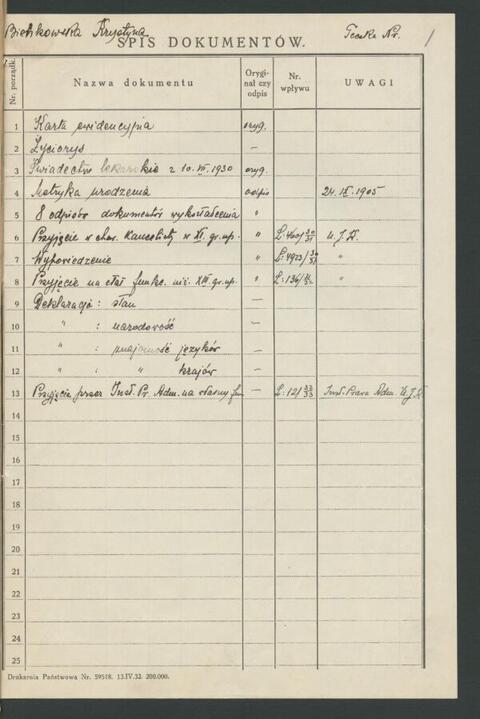 Bieńkowska Krystyna
Teczka Nr. 1
SPIS DOKUMENTÓW.
Nr. porządk. Nazwa dokumentu Orygi- nał czy odpis Nr. wpływu UWAGI
1 Karta ewidencyjna oryg.
2 Życiorys —
3 Świadectwo lekarskie z 10. 1930 oryg.
4 Metryka urodzenia odpis 24. IX. 1905
5 8 odpisów dokumentów wykształcenia "
6 Przyjęcie w char. kancelisty w XI. gr. up. " U. J. K.
7 Wypowiedzenie " "
8 Przyjęcie na etat funkc. niż. XIII. gr. up. " "
9 Deklaracja: stan —
10 " : narodowość —
11 " : znajomość języków —
12 " : " krajów —
13 Przyjęcie przez Inst. Pr. Adm. na — L: 12/33 Inst. Prawa Adm. U. J. K.
14
15
16
17
18
19
20
21
22
23
24
25
Drukarnia Państwowa Nr. 59518. 13.IV.32. 200.000.